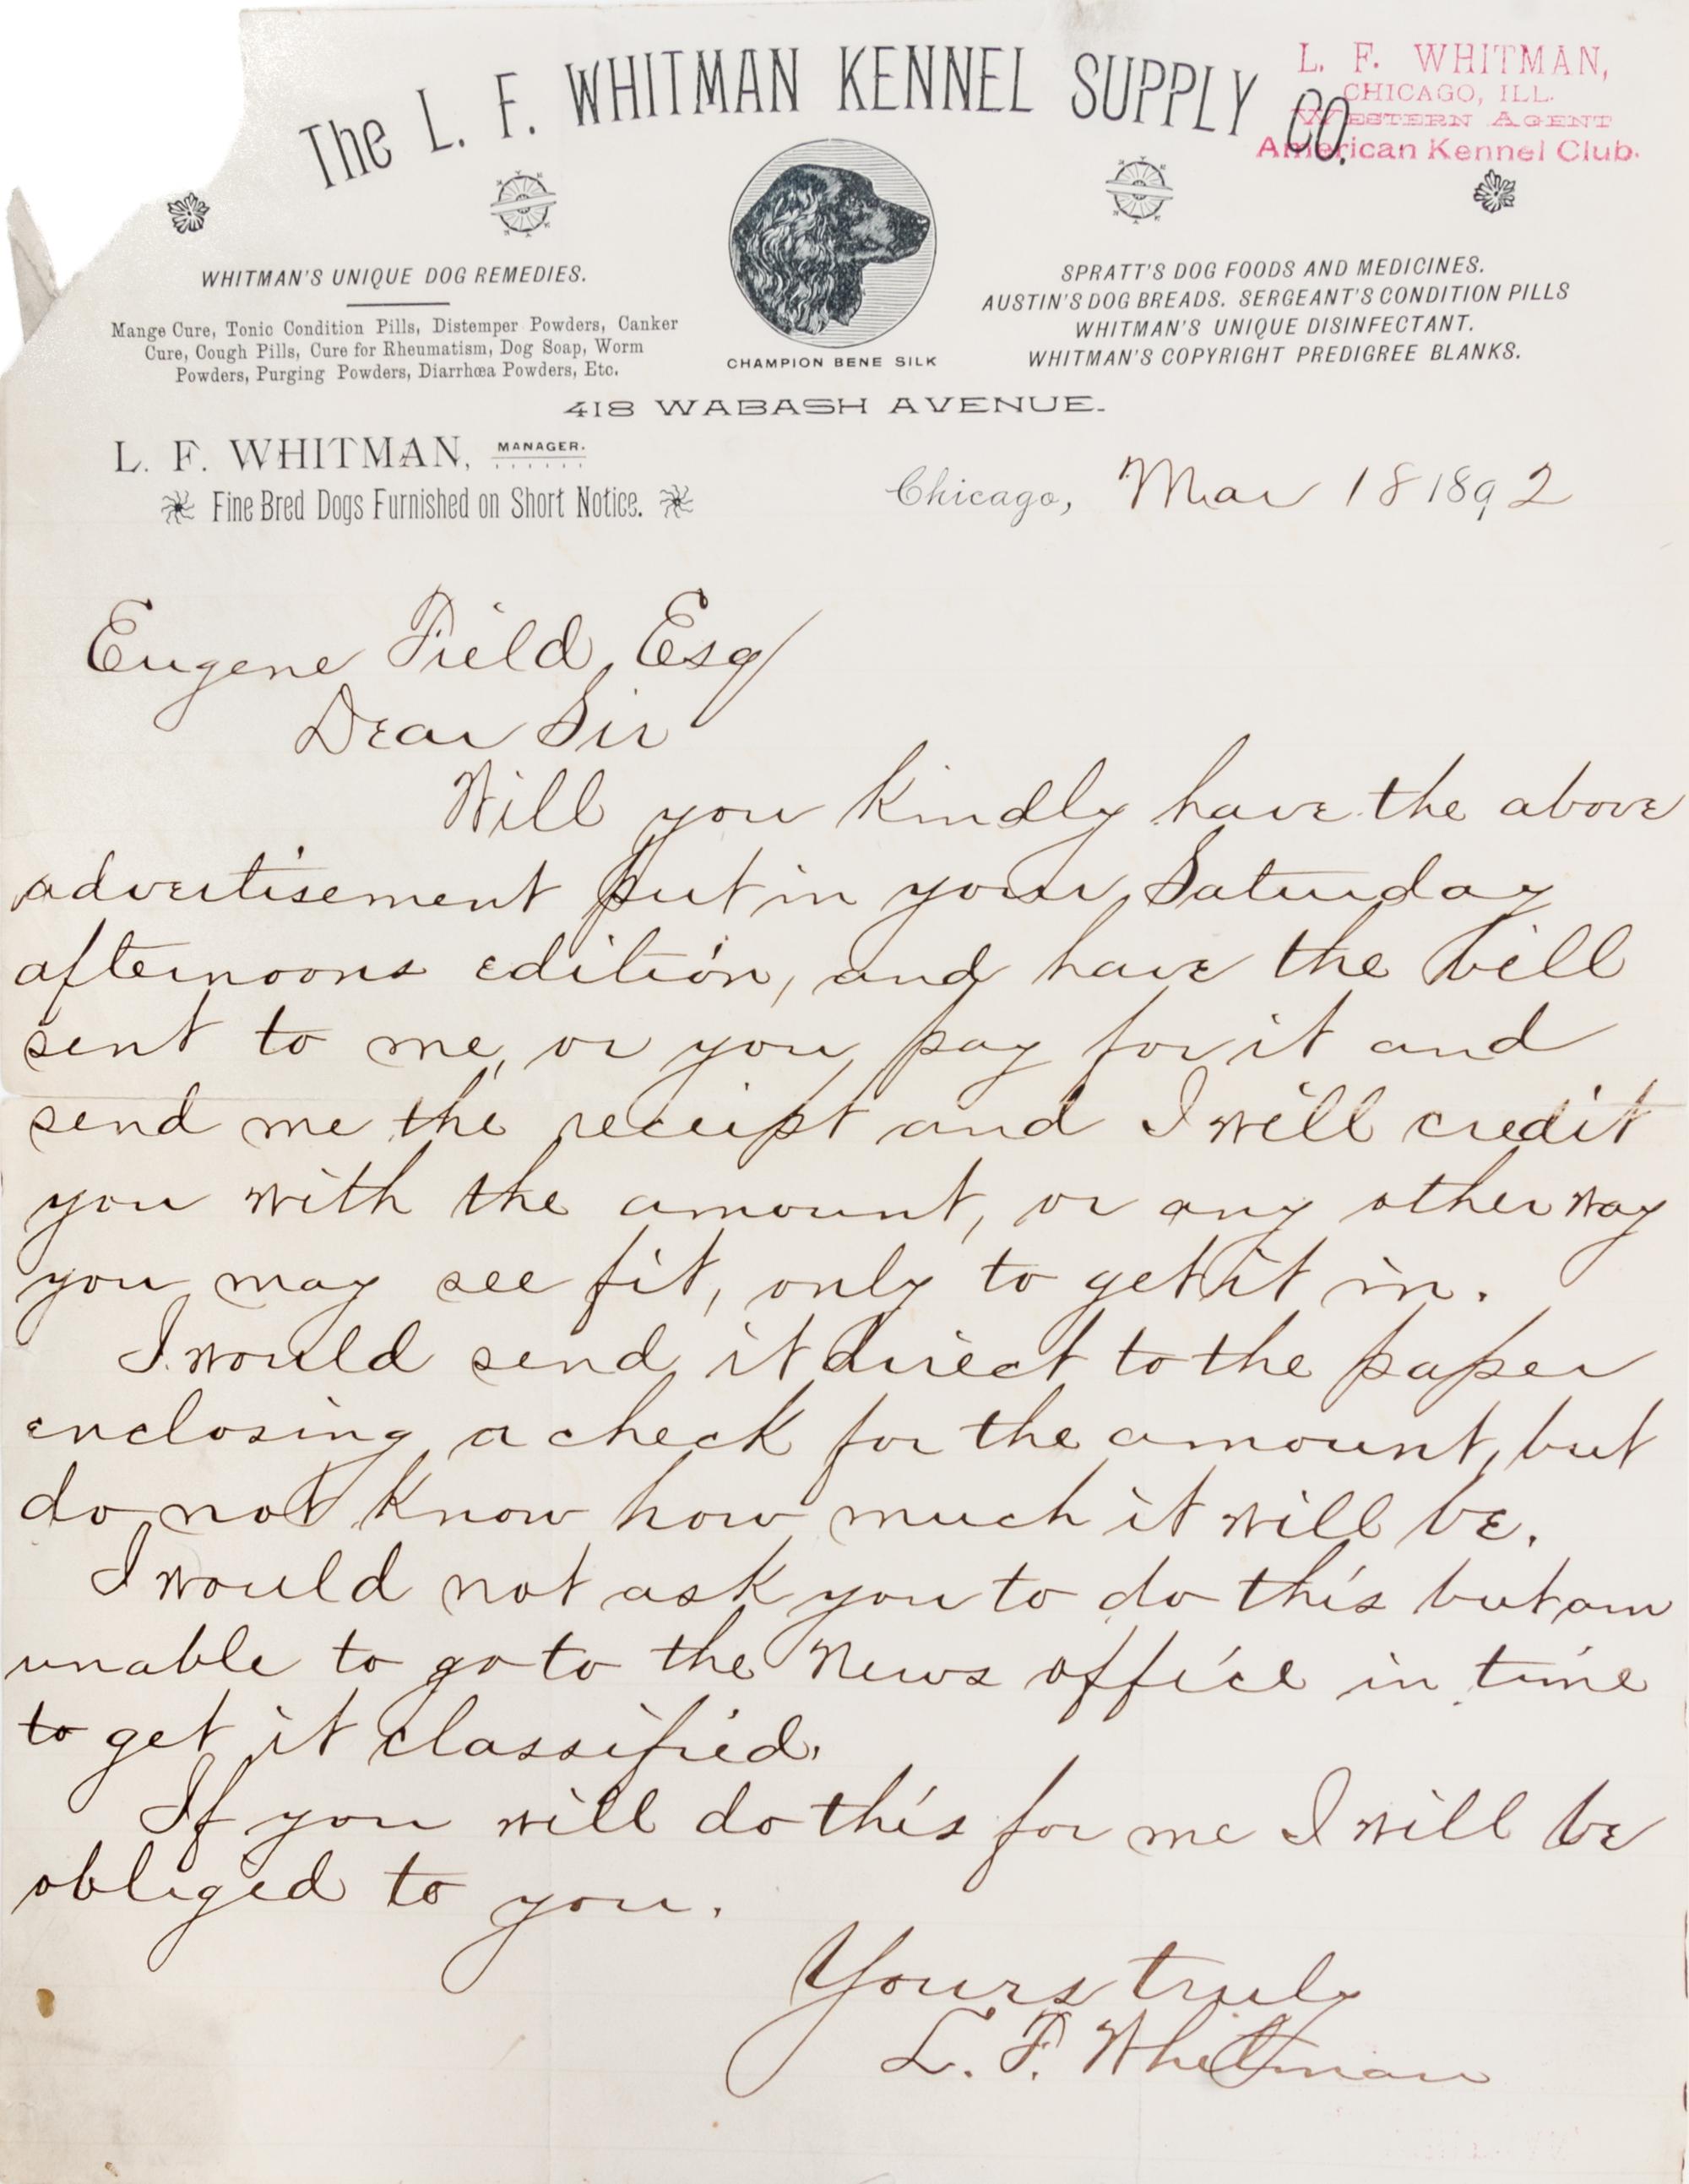 The L. F. WHITMAN KENNEL SUPPLY CO.
L. F. WHITMAN,
CHICAGO, ILL.
WESTERN AGENT
American Kennel Club.
WHITMAN'S UNIQUE DOG REMEDIES.
Mange Cure, Tonic Condition Pills, Distemper Powders, Canker
Cure, Cough Pills, Cure for Rheumatism, Dog Soap, Worm
Powders, Purging Powders, Diarrhœa Powders, Etc.
CHAMPION BENE SILK
SPRATT'S DOG FOODS AND MEDICINES.
AUSTIN'S DOG BREADS. SERGEANT'S CONDITION PILLS
WHITMAN'S UNIQUE DISINFECTANT.
WHITMAN'S COPYRIGHT PREDIGREE BLANKS.
418 WABASH AVENUE.
L. F. WHITMAN, MANAGER.
Fine Bred Dogs Furnished on Short Notice.
Chicago, Mar 18 1892
Eugene Field, Esq
Dear Sir
Will you kindly have the above
advertisement put in your Saturday
afternoons edition, and have the bill
sent to me, or you pay for it and
send me the receipt and I will credit
you with the amount, or any other way
you may see fit, only to get it in.
I would send it direct to the paper
enclosing a check for the amount, but
do not know how much it will be.
I would not ask you to do this but am
unable to go to the News office in time
to get it classified.
If you will do this for me I will be
obliged to you.
Yours truly
L. F. Whitman